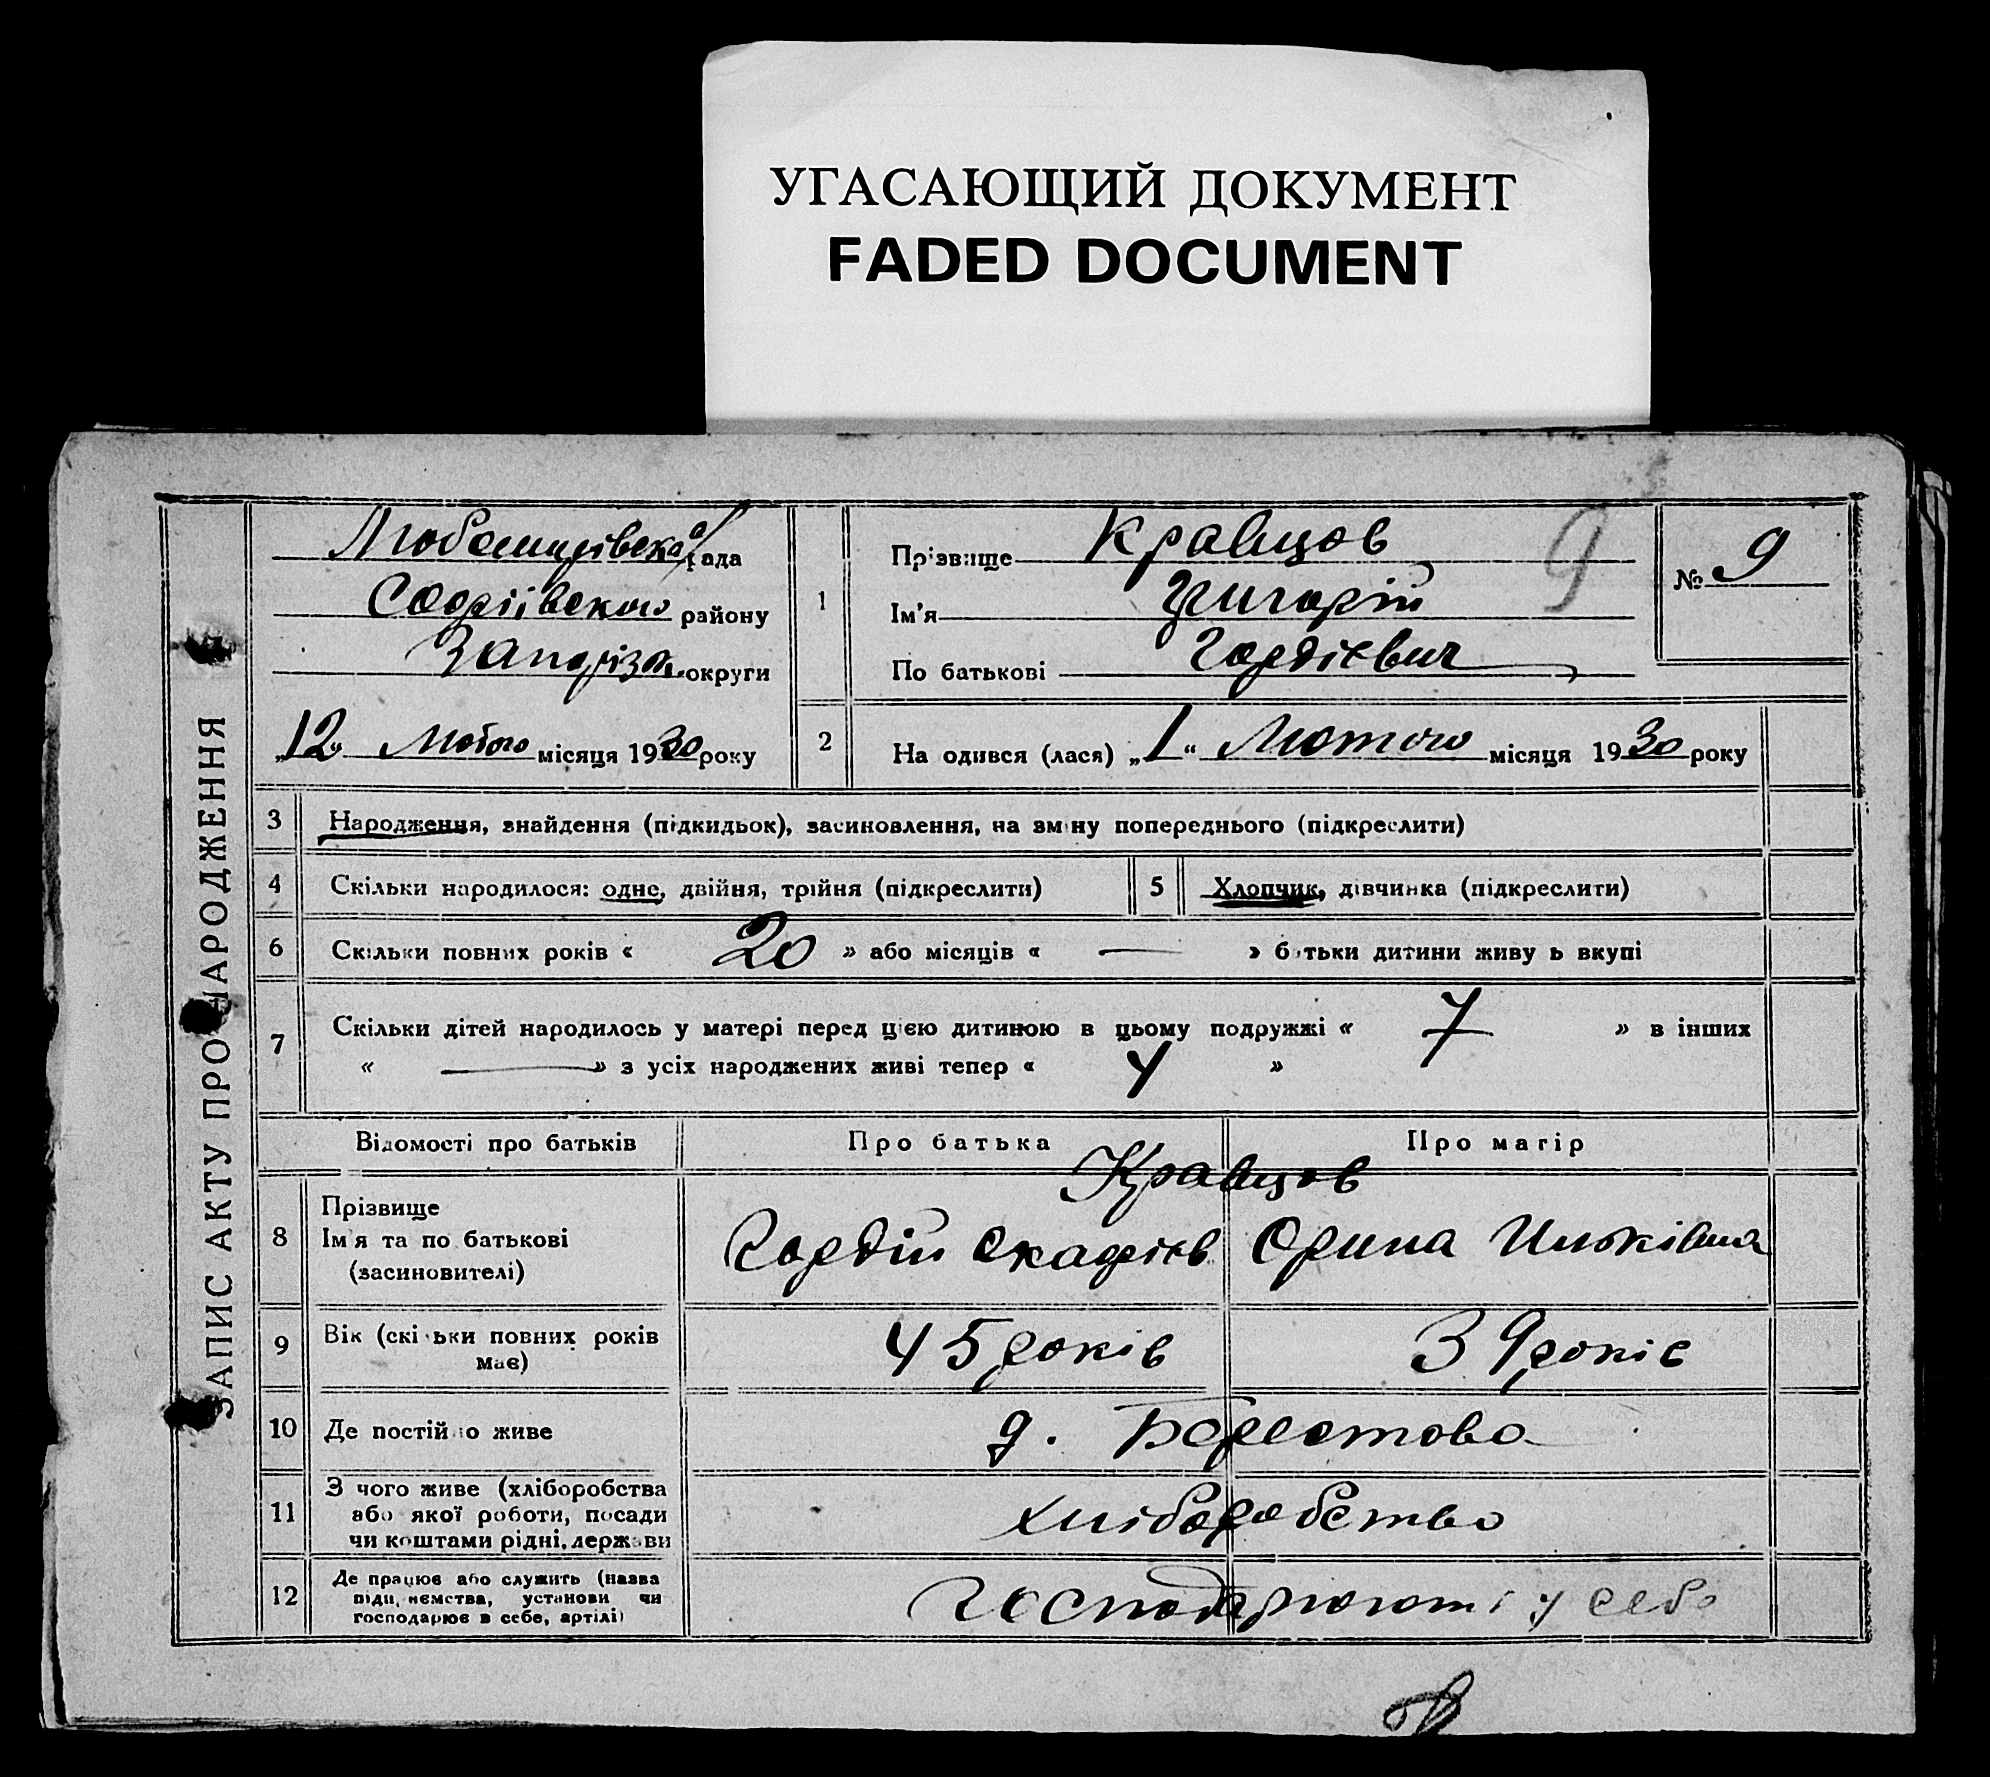 УГАСАЮЩИЙ ДОКУМЕНТ
FADED DOCUMENT
ЗАПИС АКТУ ПРО НАРОДЖЕННЯ
Любомирівська с/рада
Софіївского району
Запоріз. округи
„12“ Лютого місяця 1930 року
1
Прізвище Кравцов
9
Ім'я Григорій
По батькові Гордієвич
№ 9
2
На одився (лася) „1“ Лютого місяця 1930 року
3 Народження, знайдення (підкидьок), засиновлення, на зміну попереднього (підкреслити)
4 Скільки народилося: одне, двійня, трійня (підкреслити)
5 Хлопчик, дівчинка (підкреслити)
6 Скільки повних років « 20 » або місяців « — » б тьки дитини живу ь вкупі
7 Скільки дітей народилось у матері перед цією дитиною в цьому подружжі « 7 » в інших
« — » з усіх народжених живі тепер « 4 »
Відомості про батьків Про батька Про матір
8 Прізвище Кравцов
Ім'я та по батькові Гордій Орина
(засиновителі)
9 Вік (скільки повних років має) 45 років 39 років
10 Де постійно живе д. Берестова
11 З чого живе (хліборобства
або якої роботи, посади
чи коштами рідні, держави
хліборобство
12 Де працює або служить (назва
підприємства, установи чи
господарює в себе, артілі)
господарюють у себе